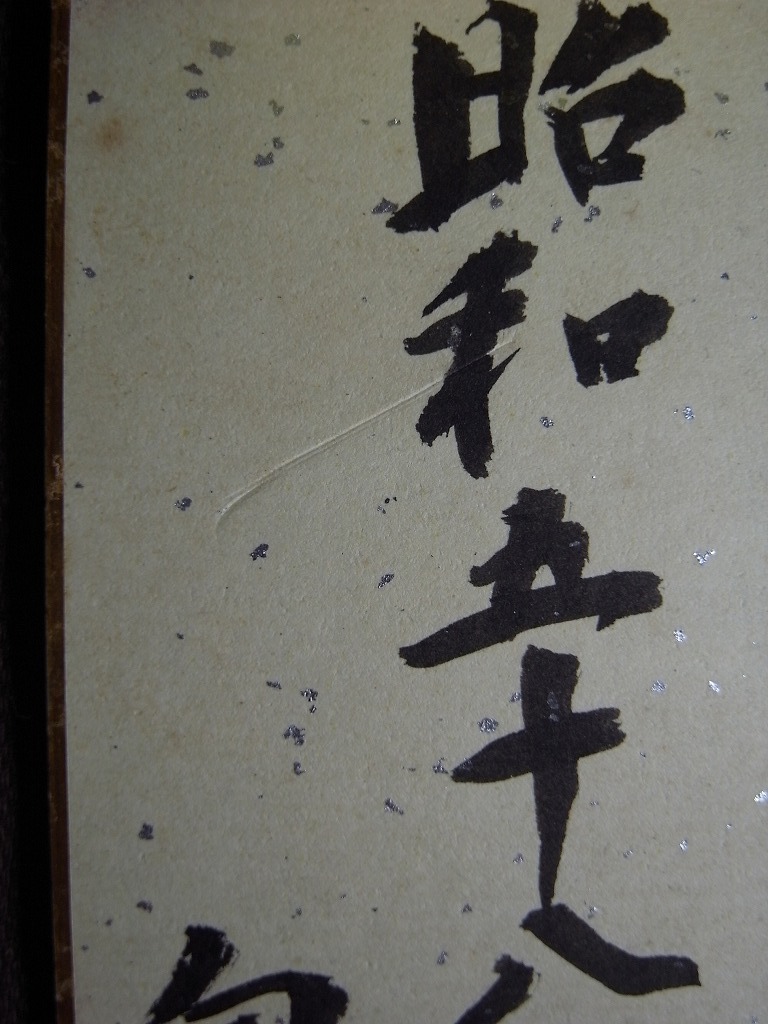 昭和五十八